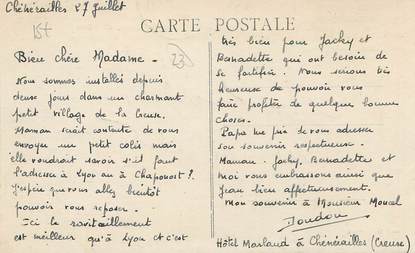 Chénérailles 27 Juillet
CARTE POSTALE
Bien chère Madame -
Nous sommes installés depuis
deux jours dans un charmant
petit village de la Creuse.
Maman serait contente de vous
envoyer un petit colis mais
elle voudrait savoir s'il faut
l'adresse à Lyon ou à Chaponost ?
J'espère que vous allez bientôt
pouvoir vous reposer.
Ici le ravitaillement
est meilleur qu'à Lyon et c'est
très bien pour Jacky et
Bernadette qui ont besoin de
se fortifier. Nous serions très
heureuse de pouvoir vous
faire profiter de quelque bonne
choses.
Papa me prie de vous adresser
son souvenir respectueux.
Maman. Jacky, Bernadette et
moi vous embrassons ainsi que
Jean bien affectueusement.
Mon souvenir à Monsieur Marcel
Doudou
Hôtel Marlaud à Chénérailles (Creuse)
23